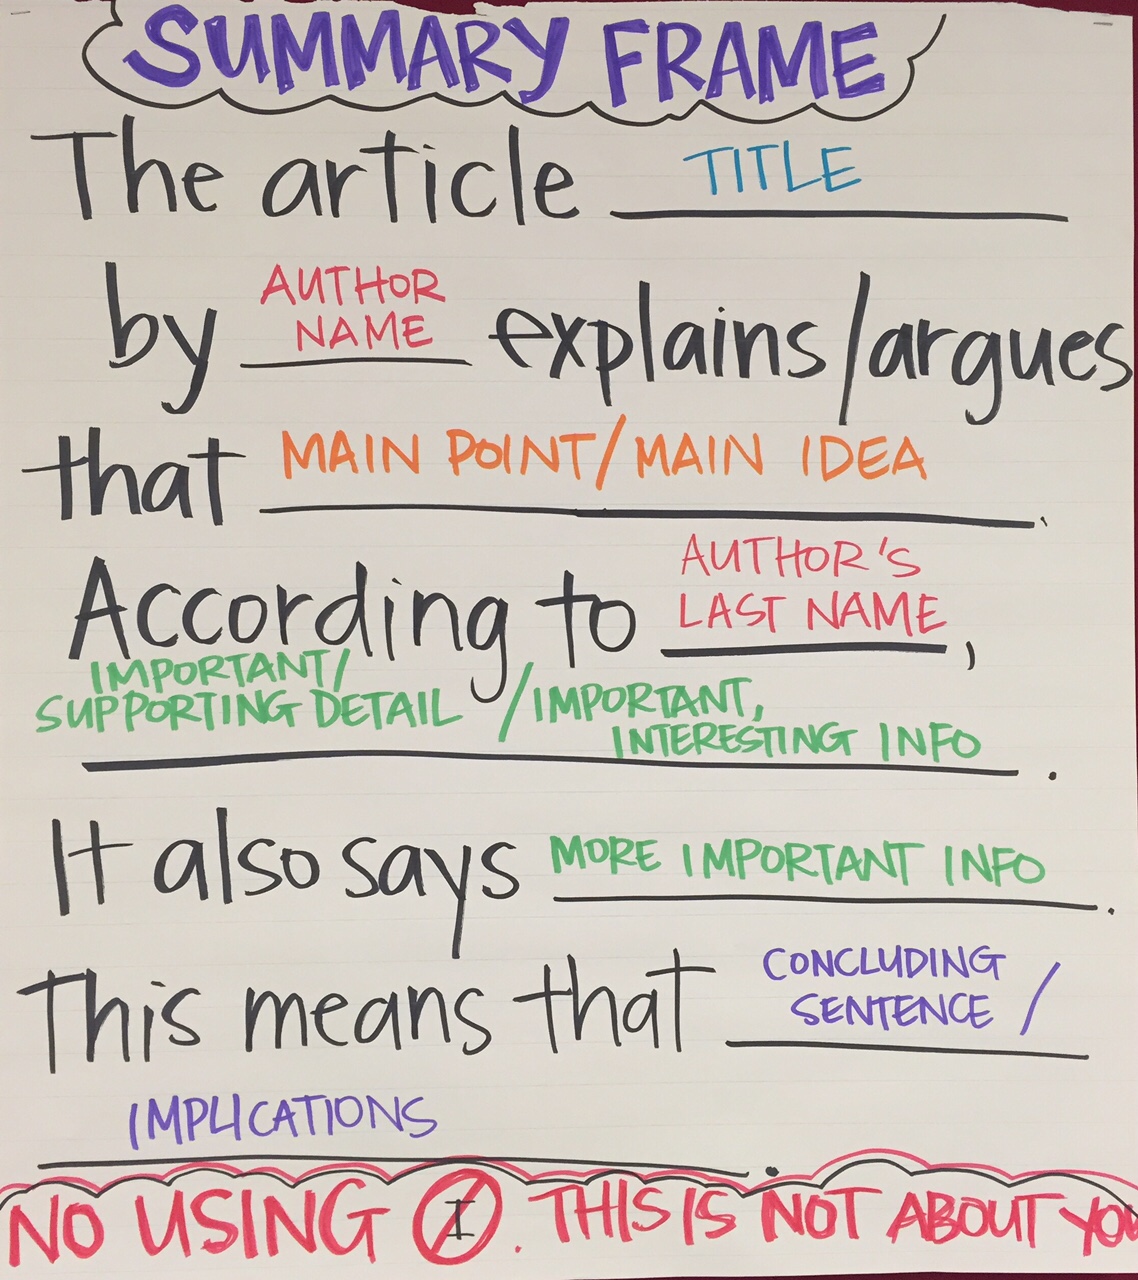 SUMMARY FRAME
The article TITLE
by AUTHOR NAME explains/argues
that MAIN POINT/MAIN IDEA.
According to AUTHOR'S LAST NAME,
IMPORTANT/
SUPPORTING DETAIL / IMPORTANT,
INTERESTING INFO.
It also says MORE IMPORTANT INFO.
This means that CONCLUDING SENTENCE /
IMPLICATIONS.
NO USING I. THIS IS NOT ABOUT YOU